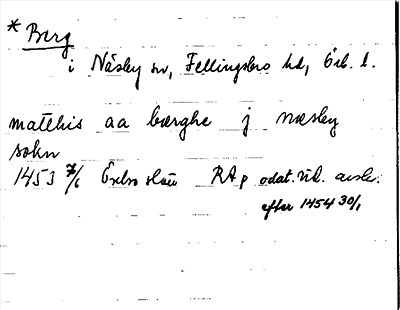 * Berg
i Näsby sn, Fellingsbro hd, Örb. l.
matthis aa bærghe j næsby
sokn
1453 7/6 Örebro slott RAp odat. vid. avskr.
efter 1454 30/1